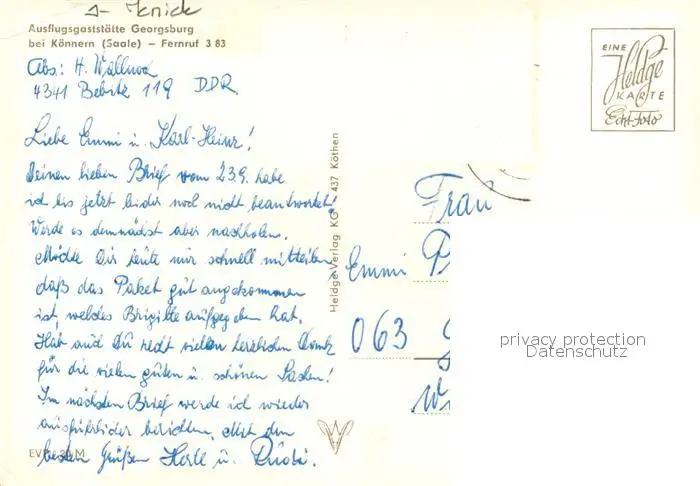 Knick
Ausflugsgaststätte Georgsburg
bei Könnern (Saale) – Fernruf 3 83
Abs.: H. Wallwod
4341 Bebitz 119 DDR
Liebe Emmi u. Karl-Heinz!
Deinen lieben Brief vom 23.9. habe
ich bis jetzt leider noch nicht beantwortet!
Werde es demnächst aber nachholen.
Möchte Dir heute nur schnell mitteilen
daß das Paket gut angekommen
ist, welches Brigitte aufgegeben hat.
Hab auch Du recht vielen herzlichen Dank
für die vielen guten u. schönen Sachen!
Im nächsten Brief werde ich wieder
ausführlicher berichten. Mit den
besten Grüßen Herta u.
EVP
M
Heldge-Verlag KG 437 Köthen
EINE
Heldge
KARTE
Echt Foto
Frau
Emmi P
063
W
privacy protection
Datenschutz